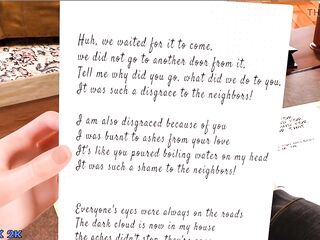 Huh, we waited for it to come,
we did not go to another door from it.
Tell me why did you go, what did we do to you,
It was such a disgrace to the neighbors!
I am also disgraced because of you
I was burnt to ashes from your love
It's like you poured boiling water on my head
It was such a shame to the neighbors!
Everyone's eyes were always on the roads
The dark cloud is now in my house
the aches didn't stop, they're
TH
2K